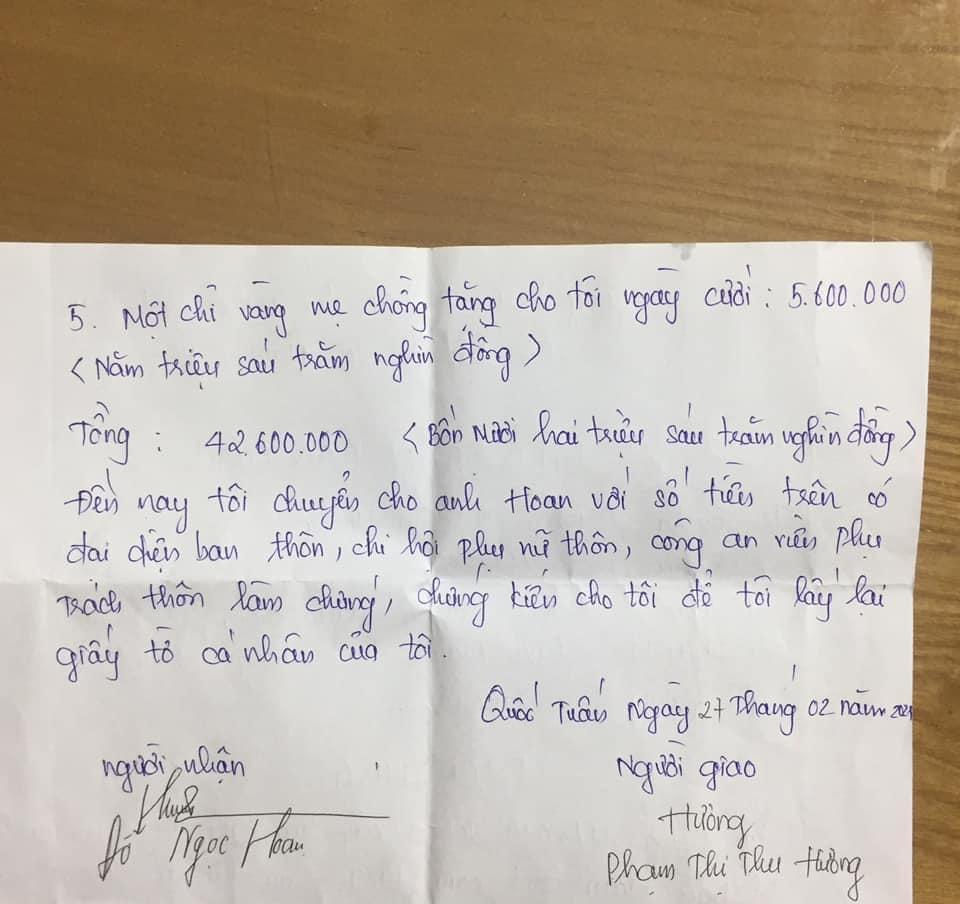 5. Một chỉ vàng mẹ chồng tặng cho tôi ngày cưới : 5.600.000
< Năm triệu sáu trăm nghìn đồng >
Tổng : 42.600.000 < Bốn Mươi hai triệu sáu trăm nghìn đồng >
Đến nay tôi chuyển cho anh Hoan với số tiền trên có
đại diện ban thôn, chi hội phụ nữ thôn, công an viên phụ
trách thôn làm chứng, chứng kiến cho tôi để tôi lấy lại
giấy tờ cá nhân của tôi.
Quốc Tuấn Ngày 27 Tháng 02 năm 2021
người nhận
Người giao
Đỗ Ngọc Hoan
Hường
Phạm Thị Thu Hường